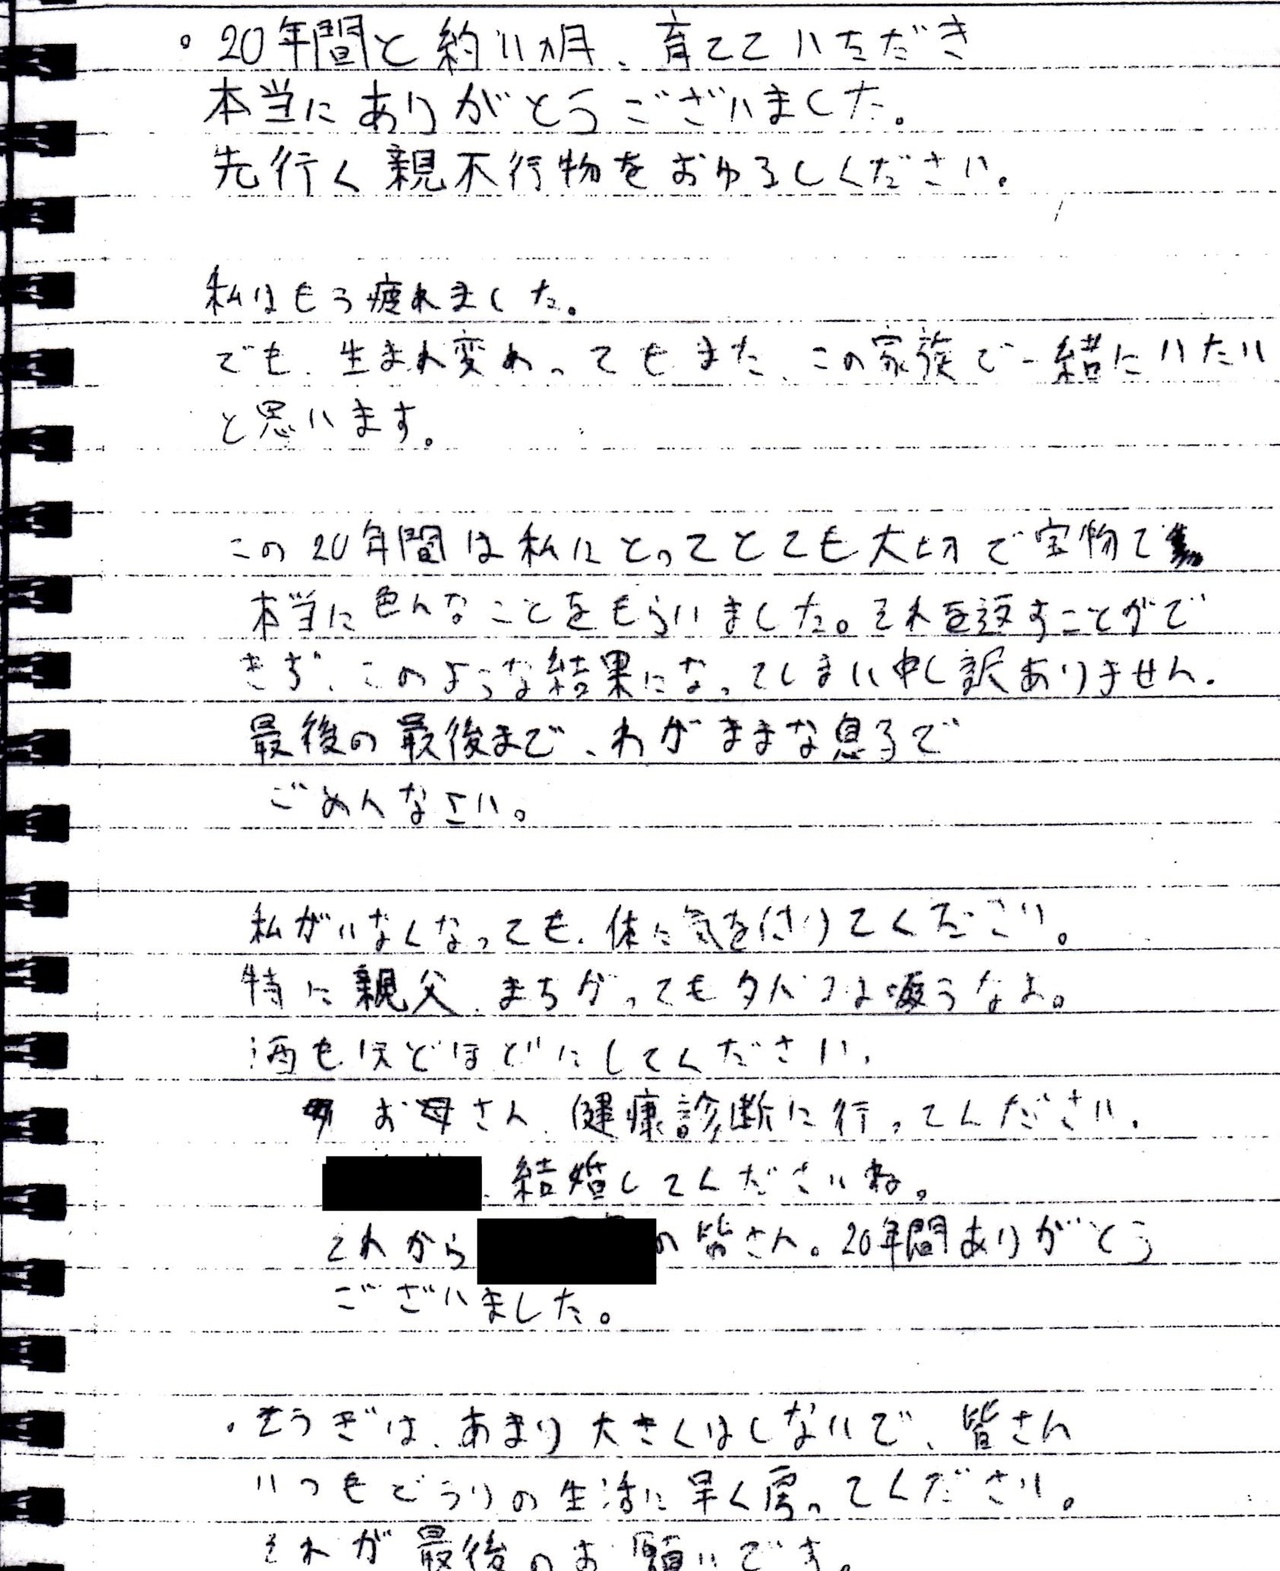 。20年間と約11カ月、育てていただき
本当にありがとうございました。
先行く親不行物をおゆるしください。
私はもう疲れました。
でも、生まれ変わってもまた、この家族で一緒にいたい
と思います。
この20年間は私にとってとても大切で宝物で
本当に色んなことをもらいました。それを返すことがで
きず、このような結果になってしまい申し訳ありません。
最後の最後まで、わがままな息子で
ごめんなさい。
私がいなくなっても、体に気を付けてください。
特に親父、まちがってもタバコは吸うなよ。
酒もほどほどにしてください。
お母さん、健康診断に行ってください。
、結婚してくださいね。
それから の皆さん。20年間ありがとう
ございました。
・そうぎは、あまり大きくはしないで、皆さん
いつもどうりの生活に早く戻ってください。
それが最後のお願いです。